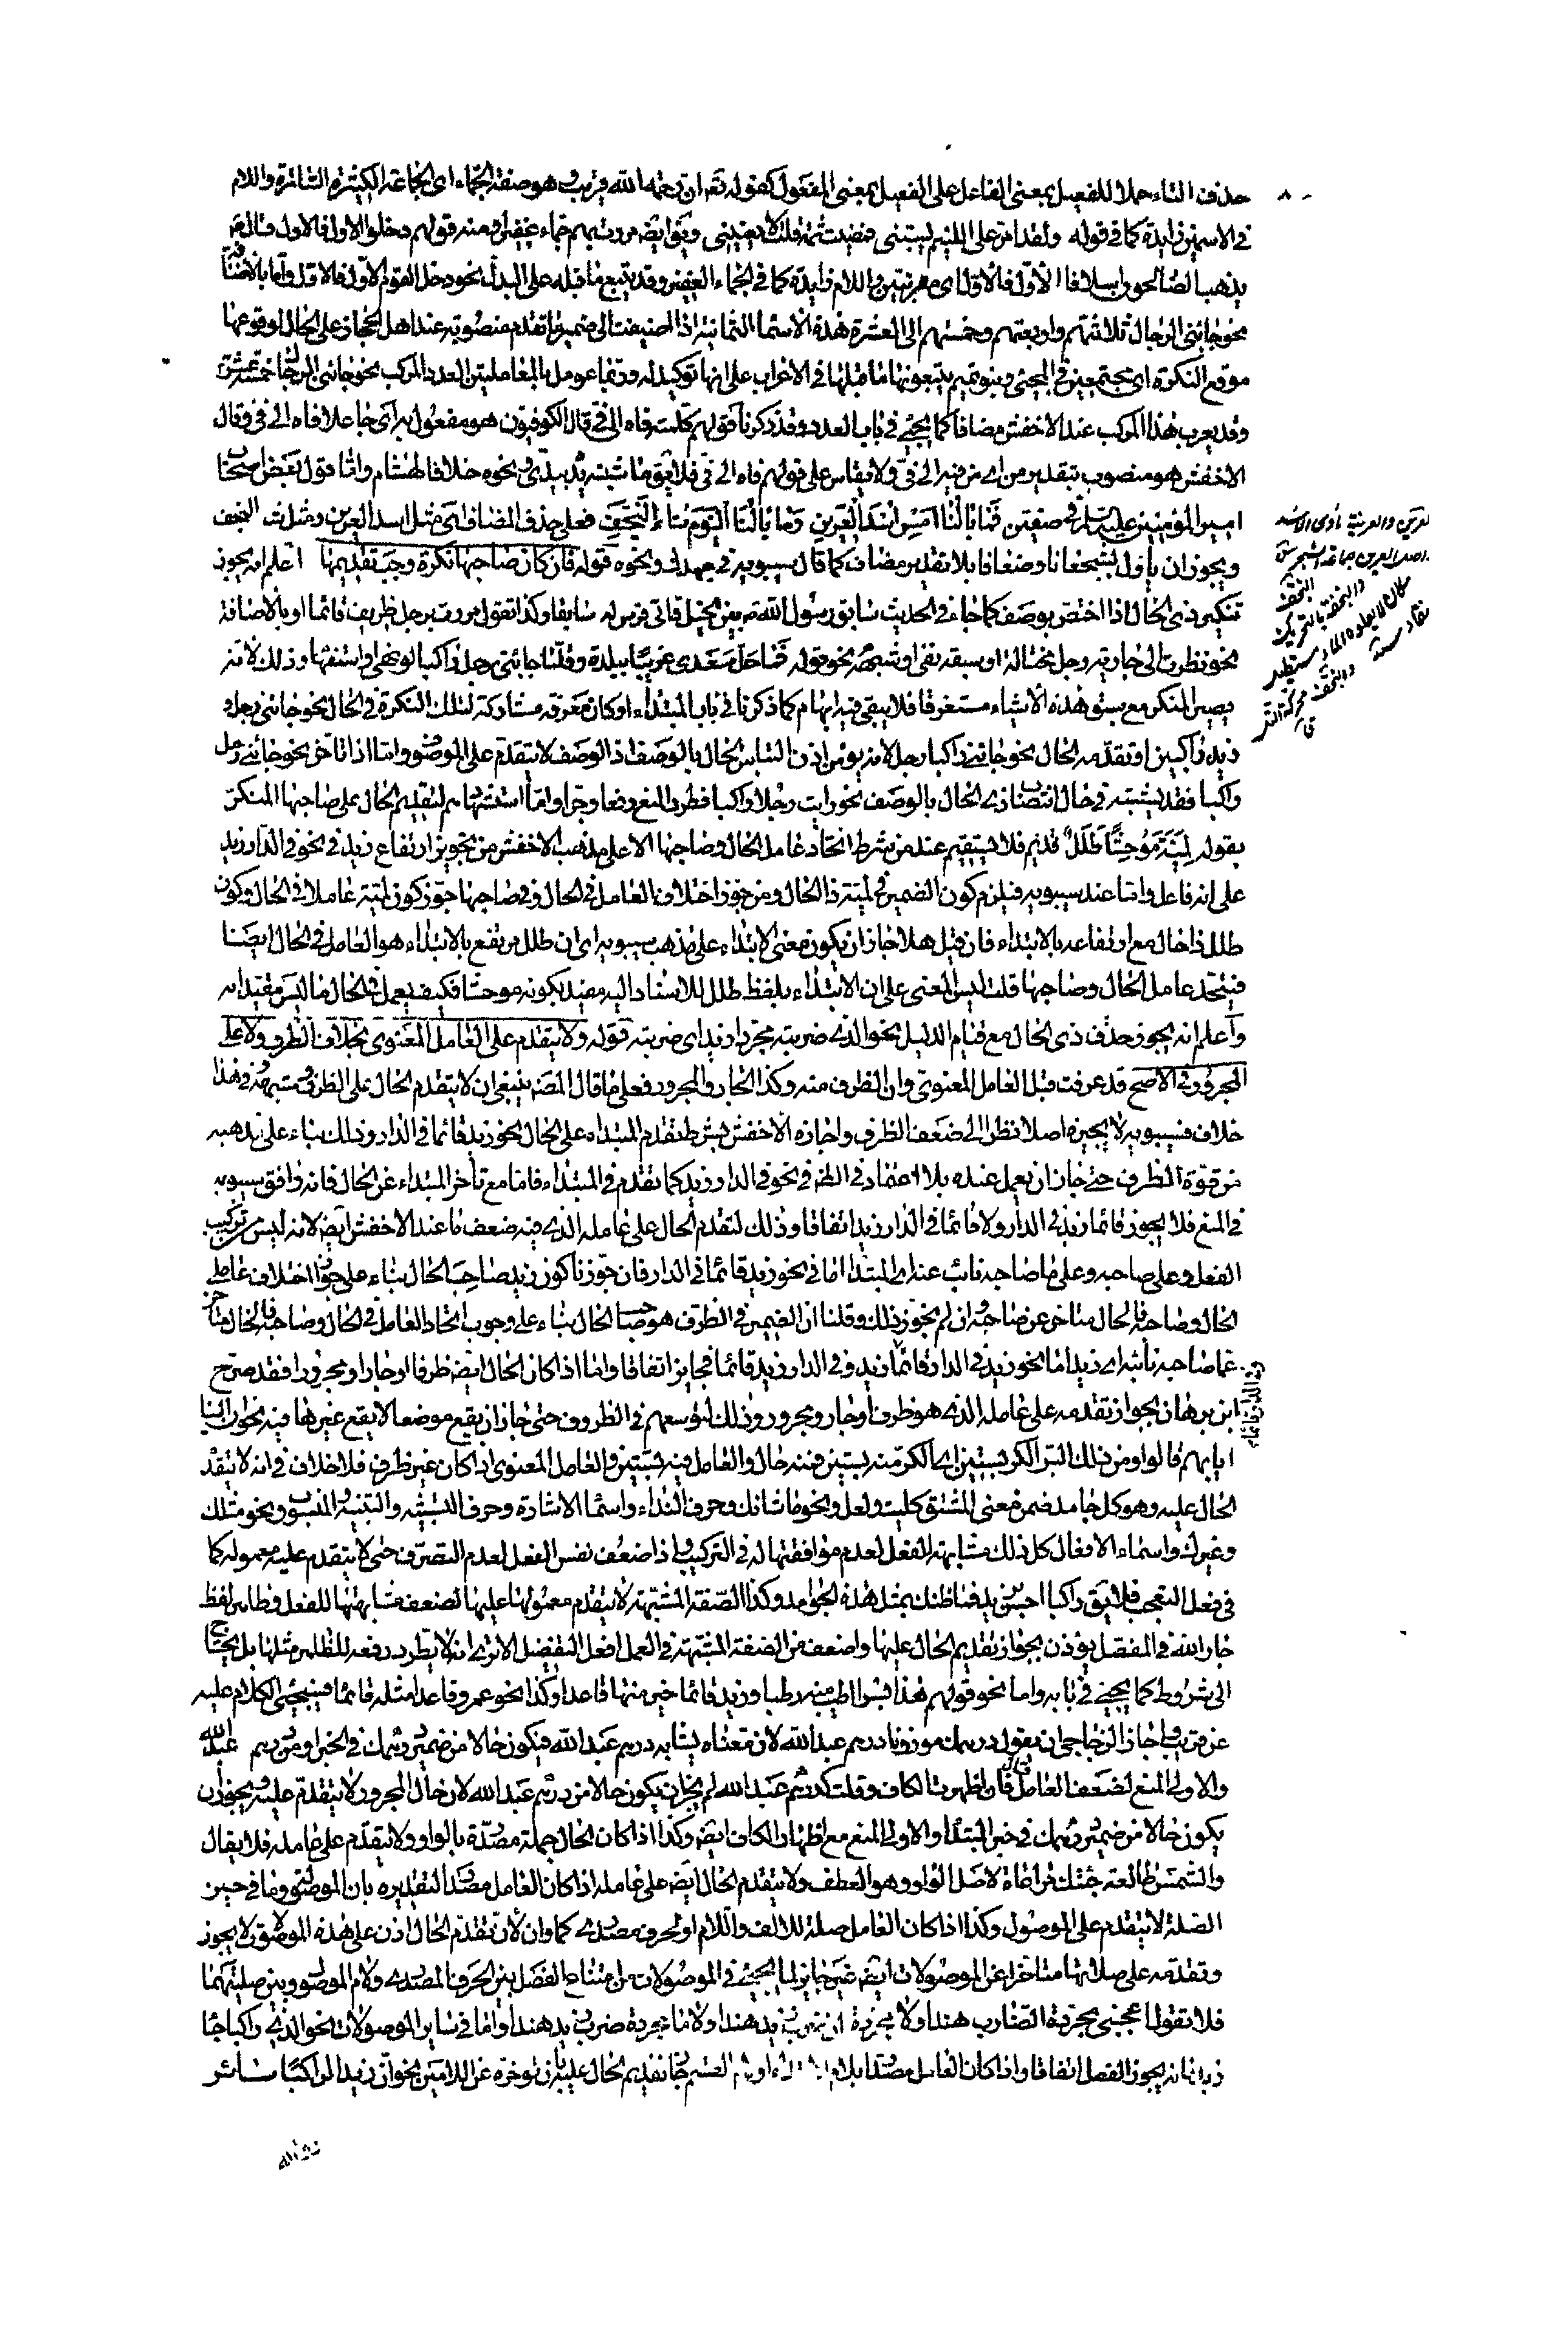 حذف التاء حملا للفعيل بمعنى الفاعل على الفعيل بمعنى المفعول كقوله تعه ان رحمة الله قريب وهو صفة الجماء اى الجماعة الكثيرة الساترة واللام
فى الاسمين زايدة كما فى قوله ولقد امر على اللئيم يسبنى فمضيت ثمة قلت لا يعنينى ويق ايضه مررت بهم جماء غفيرا ومنه قولهم دخلوا الاول فالاول وقال
يذهب الصالحون اسلافا الأول فالأول اى مرتبين واللام زايدة كما فى الجماء الغفير وقد يتبع ما قبله على البدل نحو دخل القوم الاول فالاول واما بالاضافة
نحو جائنى الرجال ثلاثتهم واربعتهم وخمستهم الى العشرة فهذه الاسماء الثمانية اذا اضيفت الى ضمير ما تقدم منصوبة عند اهل الحجاز على الحال لوقوعها
موقع النكرة اى مجتمعين فى المجىء وبنو تميم يتبعونها ما قبلها فى الاعراب على انها توكيد له وربما عومل بالمعاملتين العدد المركب نحو جائنى الرجال خمسة عشرهم
وقد يعرب هذا المركب عند الاخفش مضافا كما يجىء فى باب العدد وقد ذكرنا قولهم كلمته فاه الى فى قال الكوفيون هو مفعول به اى جاعلا فاه الى فى وقال
الاخفش هو منصوب بتقدير من اى من فيه الى فى ولا يقاس على قولهم فاه الى فى فلا يق ماشيته يده بيدى ونحوه خلافا لهشام واما قول بعض اصحاب
امير المؤمنين عليه السلم فى صفين فما بالنا امس اسد العرين وما بالنا اليوم شاء النجف فعلى حذف المضاف اى مثل اسد العرين ومثل شاء النجف
ويجوز ان يأول بشجعانا وضعافا بلا تقدير مضاف كما قال سيبويه فى جهدك ونحوه قوله فان كان صاحبها نكرة وجب تقديمها اعلم انه يجوز
تنكير ذى الحال اذا اختص بوصف كما جاء فى الحديث سابق رسول الله صه بين الخيل فاتى فرس له سابقا وكذا تقول مررت برجل ظريف قائما او بالاضافة
نحو نظرت الى جارية رجل مختالة او سبقه نفى او شبهه نحو قوله فما حل سعدى غريبا ببلدة وقلما جائنى رجل راكبا او نهى او استفهام وذلك لانه
يصير المنكر مع سبق هذه الأشياء مستغرقا فلا يبقى فيه ابهام كما ذكرنا فى باب المبتداء او كان معرفة مشاركة لتلك النكرة فى الحال نحو جائنى رجل و
زيد راكبين او تقدمه الحال نحو جائنى راكبا رجل لانه يؤمن اذن التباس الحال بالوصف اذ الوصف لا يتقدم على الموصوف واما اذا تأخر نحو جائنى رجل
راكبا فقد يشتبه فى حال انتصاب ذى الحال بالوصف نحو رايت رجلا راكبا فطرد المنع رفعا وجرا واما استشهادهم لتقديم الحال على صاحبها المنكر
بقوله لمية موحشا طلل قديم فلا يستقيم عند من شرط اتحاد عامل الحال وصاحبها الا على مذهب الاخفش من تجويز ارتفاع زيد فى نحو فى الدار زيد
على انه فاعل واما عند سيبويه فيلزم كون الضمير فى لمية ذا الحال ومن جوز اختلاف العامل فى الحال وفى صاحبها جوز كون لمية عاملا فى الحال وكون
طلل ذا حال مع ارتفاعه بالابتداء فان قيل هلا جاز ان يكون معنى الابتداء على مذهب سيبويه اى ان طلل مرتفع بالابتداء هو العامل فى الحال ايضا
فيتحد عامل الحال وصاحبها قلت ليس المعنى على ان الابتداء بلفظ طلل للاسناد اليه مقيد بكونه موحشا فكيف يعمل فى الحال ما ليس مقيدا به
واعلم انه يجوز حذف ذى الحال مع قيام الدليل نحو الذى ضربته مجردا زيد اى ضربته قوله ولا يتقدم على العامل المعنوى بخلاف الظرف ولا على
المجرور فى الاصح قد عرفت قبل العامل المعنوى وان الظرف منه وكذا الجار والمجرور فعلى ما قال المصه ينبغى ان لا يتقدم الحال على الظرف وشبهه وفى هذا
خلاف فسيبويه لا يجيزه اصلا نظرا الى ضعف الظرف واجازه الأخفش بشرط تقدم المبتداء على الحال نحو زيد قائما فى الدار وذلك بناء على مذهبه
من قوة الظرف حتى جاز ان يعمل عنده بلا اعتماد فى الظه فى نحو فى الدار زيد كما تقدم فى المبتداء فاما مع تأخر المبتداء عن الحال فانه وافق سيبويه
فى المنع فلا يجوز قائما زيد فى الدار ولا قائما فى الدار زيد اتفاقا وذلك لتقدم الحال على عامله الذى فيه ضعف ما عند الاخفش ايضه لانه ليس من تركيب
الفعل وعلى صاحبه وعلى ما صاحبه نائب عنه اى المبتدأ اما فى نحو زيد قائما فى الدار فان جوزنا كون زيد صاحب الحال بناء على جواز اختلاف عاملى
الحال وصاحبه فالحال متاخر عن صاحبه وان لم نجوز ذلك وقلنا ان الضمير فى الظرف هو صاحب الحال بناء على وجوب اتحاد العامل فى الحال وصاحبه فالحال متاخر
عما صاحبه نائبه اى زيد اما نحو زيد فى الدار قائما وفى الدار زيد قائما فجايز اتفاقا واما اذا كان الحال ايضه ظرفا او جارا ومجرورا فقد صرح
ابن برهان بجواز تقدمه على عامله الذى هو ظرف او جار ومجرور وذلك لتوسعهم فى الظروف حتى جاز ان يقع موضعا لا يقع غيرها فيه نحو ان الينا
ايابهم قالوا ومن ذلك البر الكر بستين اى الكر منه بستين فمنه حال والعامل فيه بستين والعامل المعنوى اذا كان غير ظرف فلا خلاف فى انه لا يتقدم
الحال عليه وهو كل جامد ضمن معنى المشتق كليت ولعل ونحو ما شانك وحرف النداء واسما الاشارة وحرف التشبيه والتنبيه والمنسوب ونحو مثلك
وغيرك واسماء الافعال كل ذلك مشابهة الفعل لعدم موافقتها له فى التركيب واذا ضعف نفس الفعل لعدم التصرف حتى لا يتقدم عليه معموله كما
فى فعل التعجب فلا يق راكبا احسن بزيد فما ظنك بمثل هذه الجوامد وكذا الصفة المشبهة لا يتقدم معمولها عليها لضعف مشابهتها للفعل وظاهر لفظ
جار الله فى المفصل يؤذن بجواز تقديم الحال عليها واضعف من الصفة المشبهة فى العمل افعل التفضيل الا ترى انه لا يطرد رفعه للظاهر مثلها بل يحتاج
الى شروط كما يجىء فى بابه واما نحو قولهم هذا بسرا اطيب منه رطبا وزيد قائما خير منه قاعدا وكذا نحو عمرو قاعدا مثله قائما فيجئ الكلام عليه
عن قريب واجاز الزجاجى ان يقول درهمك موزونا درهم عبد الله لان معناه يشابه درهم عبد الله فيكون حالا من ضمير درهمك فى الخبر او من درهم عبد الله
والاولى المنع لضعف العامل قال فان اظهرت الكاف وقلت كدرهم عبد الله لم يجز ان يكون حالا من درهم عبد الله لان حال المجرور لا يتقدم عليه ويجوز ان
يكون حالا من ضمير درهمك فى خبر المبتدأ والاولى المنع مع اظهار الكاف ايضه وكذا اذا كان الحال جملة مصدرة بالواو ولا يتقدم على عامله فلا يقال
والشمس طالعة جئتك مراعاة لاصل الواو وهو العطف ولا يتقدم الحال ايضه على عامله اذا كان العامل مصدرا لتقديره بان الموصولة وما فى حيز
الصلة لا يتقدم على الموصول وكذا اذا كان العامل صلة للالف واللام او لحرف مصدرى كما وان لأن تقدم الحال اذن على هذه الموصولة لا يجوز
وتقدمه على صلاتها متأخرا عن الموصولات ايضه غير جايز لما يجىء فى الموصولات من امتناع الفصل بين الحرف المصدرى ولام الموصول وبين صلتهما
فلا تقول اعجبنى مجردة الضارب هندا ولا مجردة ان تضرب زيد هندا ولا ما مجردة ضرب زيد هندا واما فى ساير الموصولات نحو الذى راكبا جاء
زيد فانه يجوز الفصل اتفاقا واذا كان العامل مصدرا بلام الابتداء او لام القسم جاز تقديم الحال عليه بان تؤخره عن اللامين نحو ان زيدا لراكبا سائر
العرين والعرينة مأوى الاسد
واصل العرين جماعة الشجر
النجف
والنجفة بالتحريك
مكان لا يعلوه الماء مستطيل
منقاد